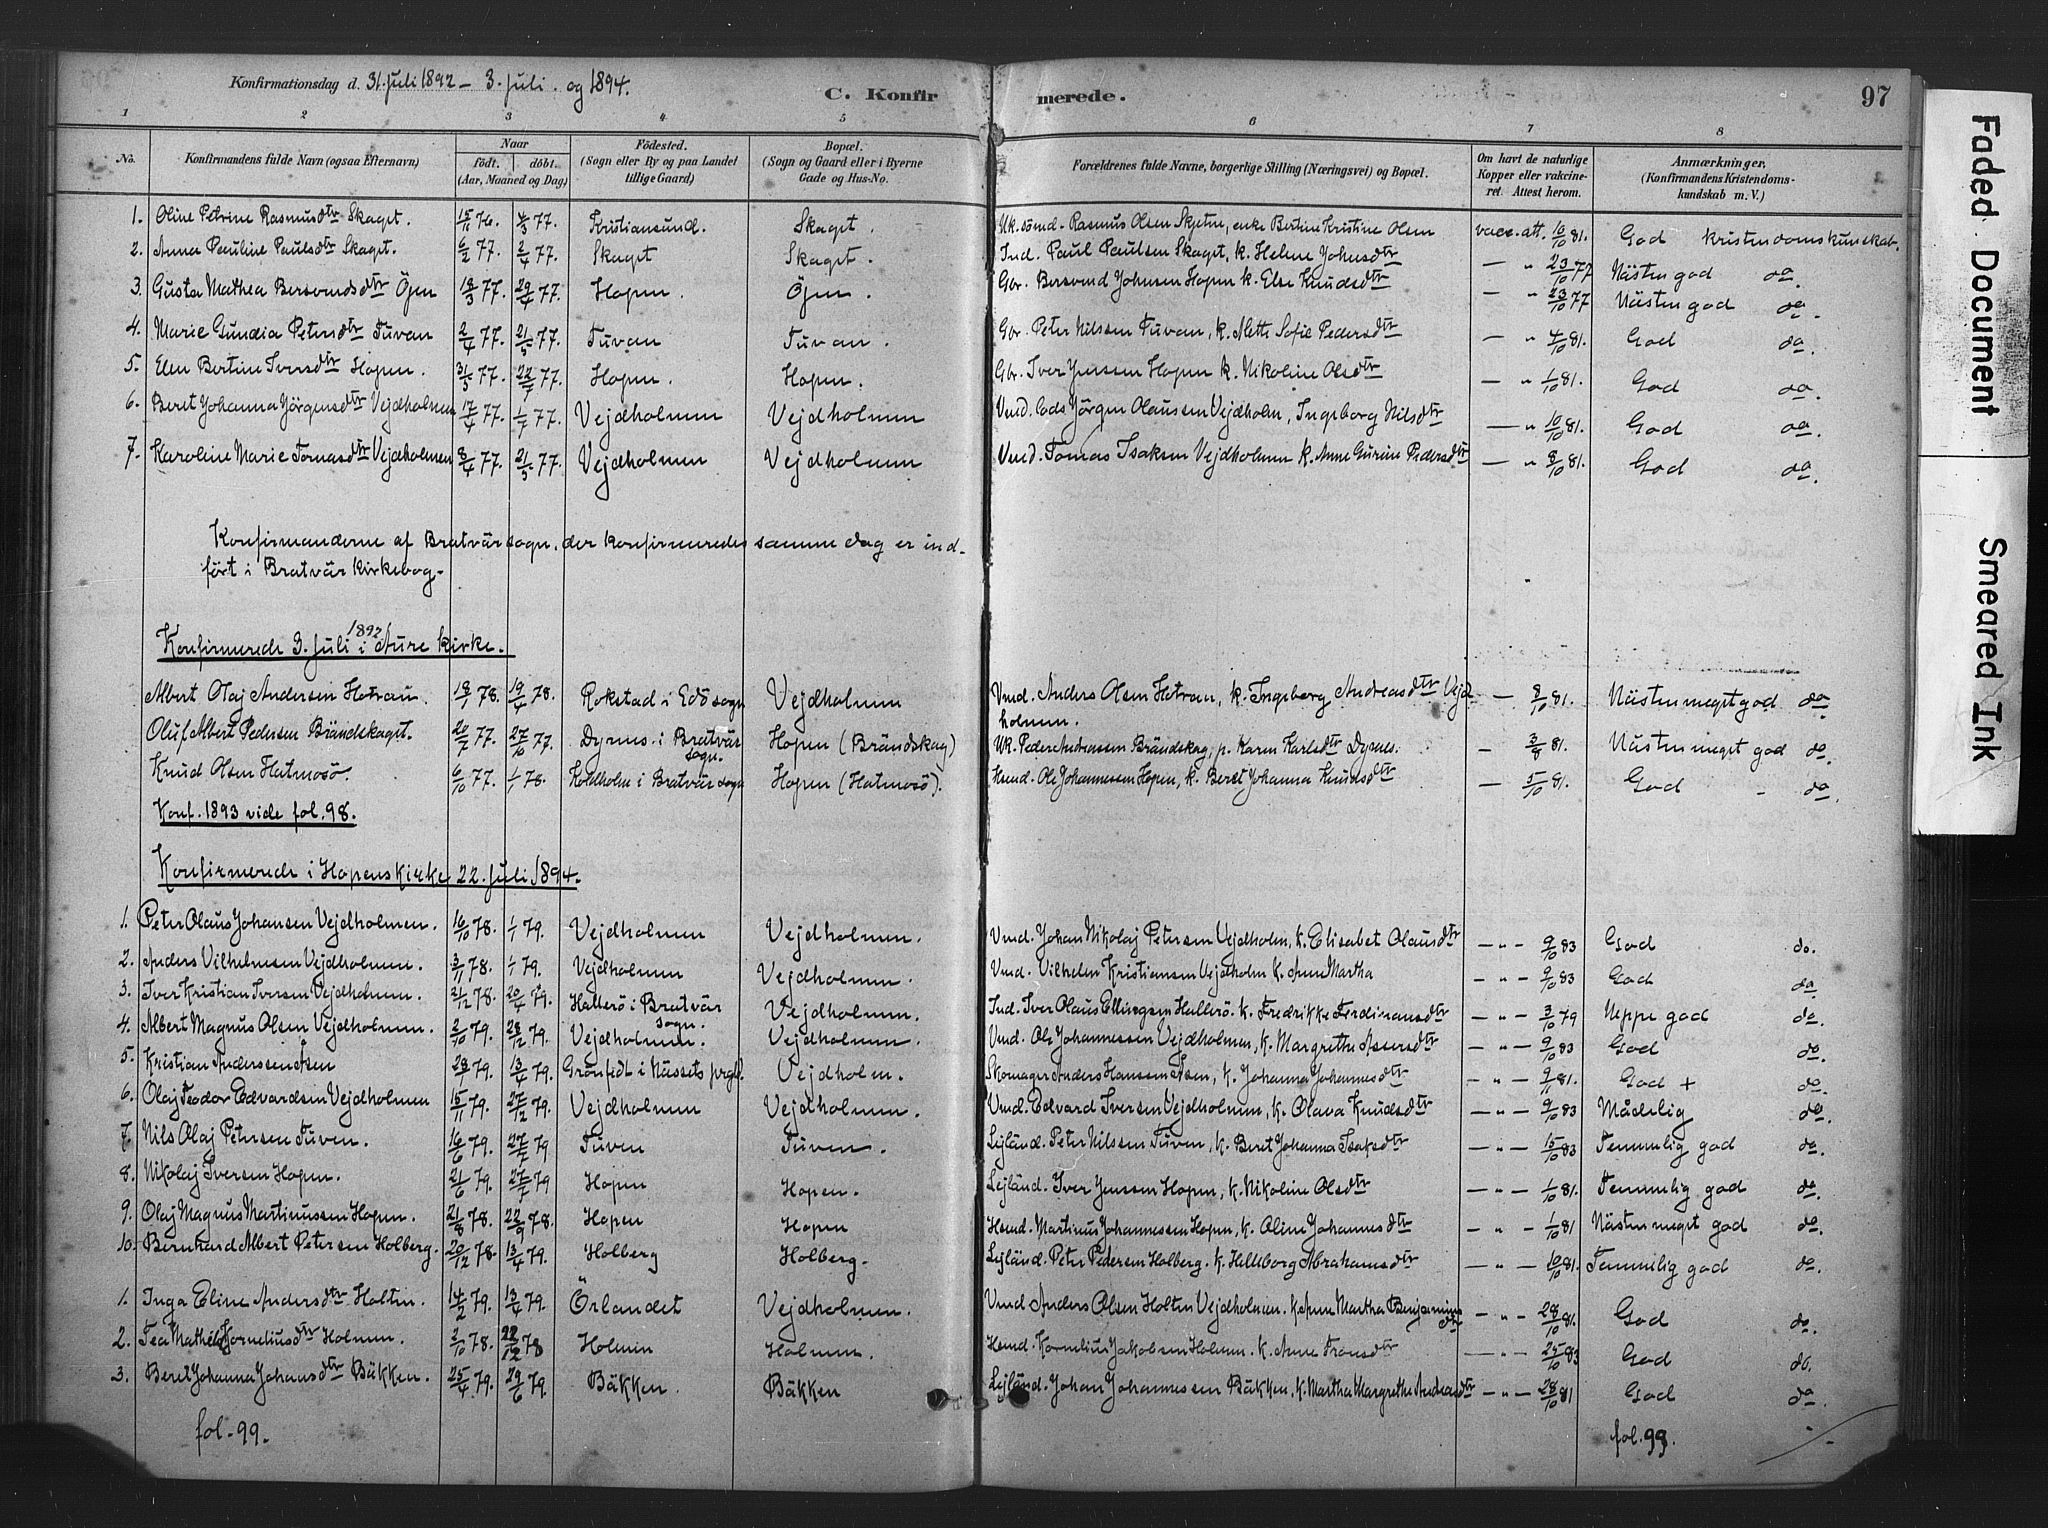 Konfirmationsdag d. 31. Juli 1892 – 3. Juli. og 1894.
C. Konfirmerede.
97
1 2 3 4 5 6 7 8
No. Konfirmandens fulde Navn (ogsaa Efternavn) Naar født. døbt. (Aar, Maaned og Dag) Fødested. (Sogn eller By og paa Landet tillige Gaard) Bopæl. (Sogn og Gaard eller i Byerne Gade og Hus-No. Forældrenes fulde Navne, borgerlige Stilling (Næringsvei) og Bopæl. Om havt de naturlige Kopper eller vakcineret. Attest herom. Anmærkninger. (Konfirmandens Kristendomskundskab m. V.)
1. Oline Petrine Rasmusdtr Skaget. 15/11 76. 4/3 77. Kristiansund. Skaget. Uk. sömd. Rasmus Olsen Skjetne, enke Bertine Kristine Olsen vacc. att. 10/10 81. God kristendomskunskab.
2. Anna Pauline Paulsdtr Skaget. 6/2 77. 2/4 77. Skaget Skaget. Ind. Paul Paulsen Skaget, k. Helene Johnsdtr — " 23/10 77 Nästen god do.
3. Gusta Mathea Bersvendsdtr Öjen 18/3 77. 29/4 77. Hopen. Öjen. Gbr. Bersvend Johnsen Hopen k. Else Knudsdtr — " 23/10 77 Nästen god do.
4. Marie Gundia Petersdtr Tuvan 2/4 77. 21/5 77. Tuvan Tuvan. Gbr. Peter Nilssen Tuvan, k. Mett Sofie Pedersdtr — " 4/10 81. God do.
5. Elen Bertine Iversdtr Hopen. 31/5 77. 22/7 77. Hopen. Hopen. Gbr. Iver Jenssen Hopen k. Nikoline Olsdtr — " 1/10 81. God do.
6. Beret Johanna Jörgensdtr Vejdholmen 17/4 77. 1/7 77. Vejdholmen Vejdholmen Vmd. Jörgen Olaussen Vejdholm, Ingeborg Nilsdtr — " 10/10 81. God do.
7. Karoline Marie Tomasdtr Vejdholmen 8/4 77. 21/5 77. Vejdholmen Vejdholmen Vmd. Tomas Isaksen Vejdholmen k. Anne Gurine Pedersdtr — " 8/10 81. God do.
Konfirmanderne af Bratvär sogn, der konfirmeredes samme dag er ind-
fört i Bratvär kirkebog-
Konfirmerede 3. Juli 1892 i Aure kirke.
Albert Olaj Andersen Hotran. 18/1 78. 19/4 78. Rokstad i Edö sogn Vejdholmen Vmd. Anders Olsen Hotran, k. Ingeborg Andreasdtr Vejdholmen. — 8/10 81. Nästen meget god do.
Oluf Albert Pedersen Brändskaget. 20/7 77. 27/10 77. Dyrnes i Bratvär sogn. Hopen (Brändskag) Uk. Peder Andreassen Brändskag, p. Karen Karlsdtr Dyrnes. — 3/8 81. Nästen meget god do.
Knud Olsen Hatmosö. 6/10 77. 1/1 78. Koldholm i Bratvär sogn Hopen (Hatmosö). Hsmd. Ole Johannesen Hopen, k. Beret Johanna Knudsdtr — 5/10 81. God do.
Konf. 1893 vide fol. 98.
Konfirmerede i Hopens Kirke 22. Juli 1894.
1. Peter Olaus Johansen Vejdholmen. 16/10 78. 1/1 79. Vejdholmen Vejdholmen. Vmd. Johan Nikolaj Petersen Vejdholm, k. Elisabet Olausdtr — " — 9/10 83 God do.
2. Anders Vilhelmsen Vejdholmen. 3/11 78. 1/1 79. Vejdholmen Vejdholmen. Vmd. Vilhelm Kristiansen Vejdholm k. Anne Martha — " — 9/10 83 God do.
3. Iver Kristian Iversen Vejdholmen. 21/12 78. 20/4 79. Hallerö i Bratvär sogn. Vejdholmen. Ind. Iver Olaus Ellingsen Hallerö. k. Fredrikke Ferdinansdtr — " — 3/10 79 Neppe god do.
4. Albert Magnus Olsen Vejdholmen. 2/10 79. 28/12 79. Vejdholmen. Vejdholmen. Vmd. Ole Johannessen Vejdholmen, k. Margrethe Assersdtr — " — 9/10 83 God do.
5. Kristian Anderssen Åsen 29/1 79. 13/4 79. Grönfedt i Nässets prgl. Vejdholm. Skomager Anders Hanssen Åsen, k. Johanna Johannesdtr — " — 9/11 81. God + do.
6. Olaj Teodor Edvardsen Vejdholmen 15/11 79. 27/12 79. Vejdholmen Vejdholmen. Vmd. Edvard Iversen Vejdholmen, k. Olava Knudsdtr — " — 9/10 83 Mådelig do.
7. Nils Olaj Petersen Tuven. 16/6 79. 27/7 79 Tuven Tuven. Lejländ. Peter Nilssen Tuven, k. Beret Johanna Isaksdtr — " — 15/10 83 Temmelig god do.
8. Nikolaj Iversen Hopen. 21/6 79. 27/7 79 Hopen Hopen. Lejländ. Iver Jenssen Hopen, k. Nikoline Olsdtr — " — 1/10 81. Temmelig god do.
9. Olaj Magnus Martinussen Hopen. 21/8 78. 22/9 78. Hopen Hopen Hsmd. Martinus Johannessen Hopen, k. Oline Johannesdtr — " — 1/10 81 Nästen meget god do.
10. Bernhard Albert Petersen Holberg. 20/12 78. 13/4 79. Holberg Holberg. Lejländ. Peter Pedersen Holberg. k. Hilleborg Abrahamsdtr — " — 10/10 81. Temmelig god do.
1. Inga Eline Andersdtr Holten. 14/2 79. 13/4 79. Örlandet Vejdholmen. Vmd Anders Olsen Holten Vejdholmen. k. Anne Martha Benjaminsdtr — " — 28/10 81. God do.
2. Tea Mathea Korneliusdtr Holmen. 2/10 78. 22/12 78 Holmen Holmen. Hsmd. Kornelius Jakobsen Holmen. k. Anne Fransdtr — — 25/10 83 God do.
3. Beret Johanna Johansdtr Bäkken. 25/4 79. 29/6 79. Bäkken. Bäkken Lejländ. Johan Johannessen Bäkken, k. Martha Margrethe Andreasdtr — " — 28/10 81 God do.
fol. 99. fol. 99.
Faded Document
Smeared Ink